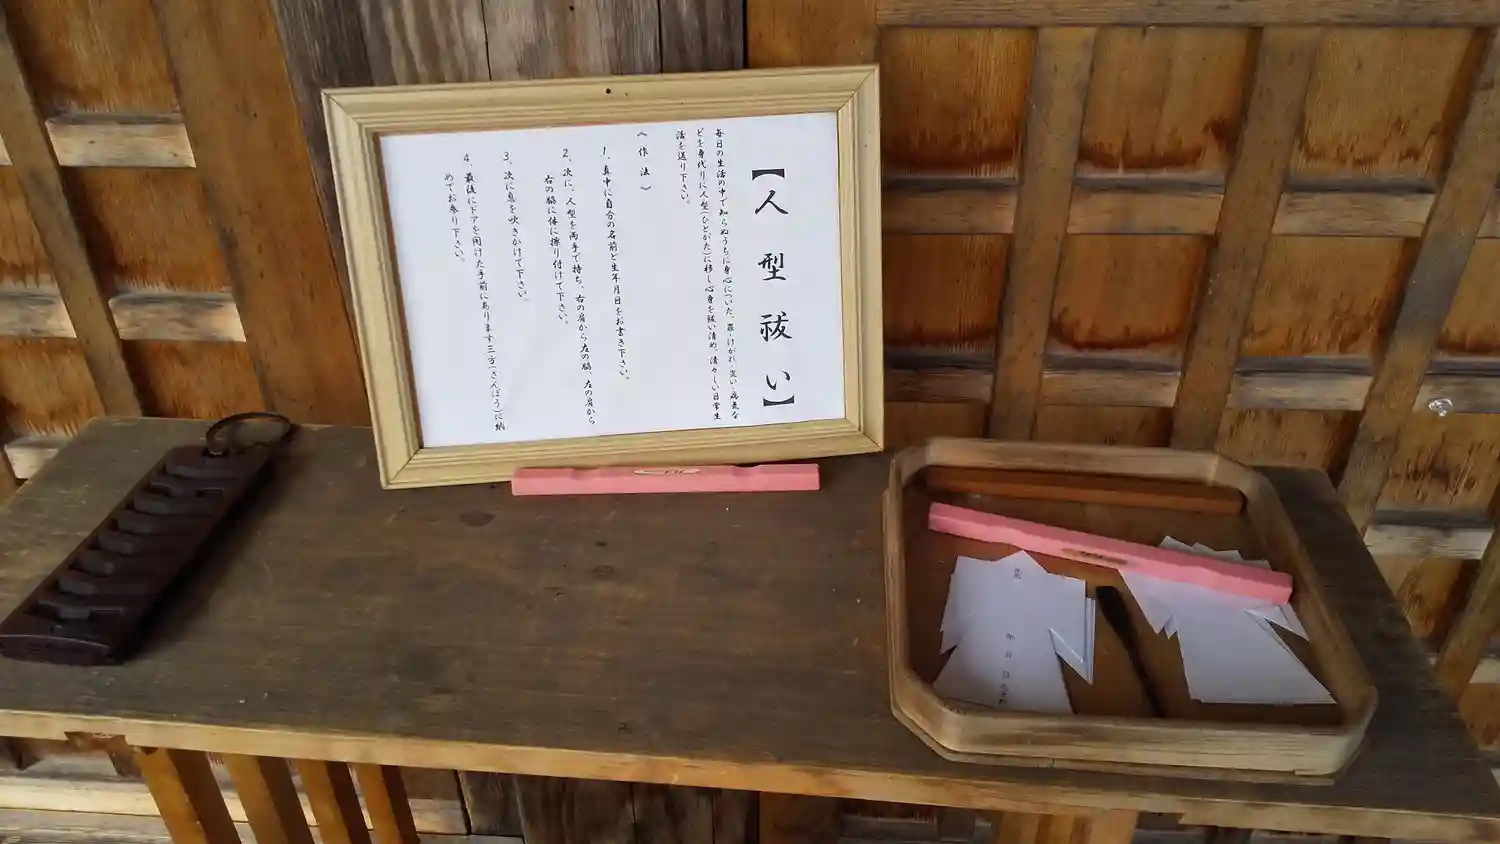 【人型祓い】
毎日の生活の中で知らぬうちに身心についた、罪・けがれ・災い・病気な
どを身代りに人型(ひとがた)に移し心身を祓い清め、清々しい日常生
活を送り下さい。
《作法》
1、真中に自分の名前と生年月日をお書き下さい。
2、次に、人型を両手で持ち、右の肩から左の脇、左の肩から
右の脇に体に擦り付けて下さい。
3、次に息を吹きかけて下さい。
4、最後にドアを開けた手前にあります三方(さんぼう)に納
めてお参り下さい。
年 月 日